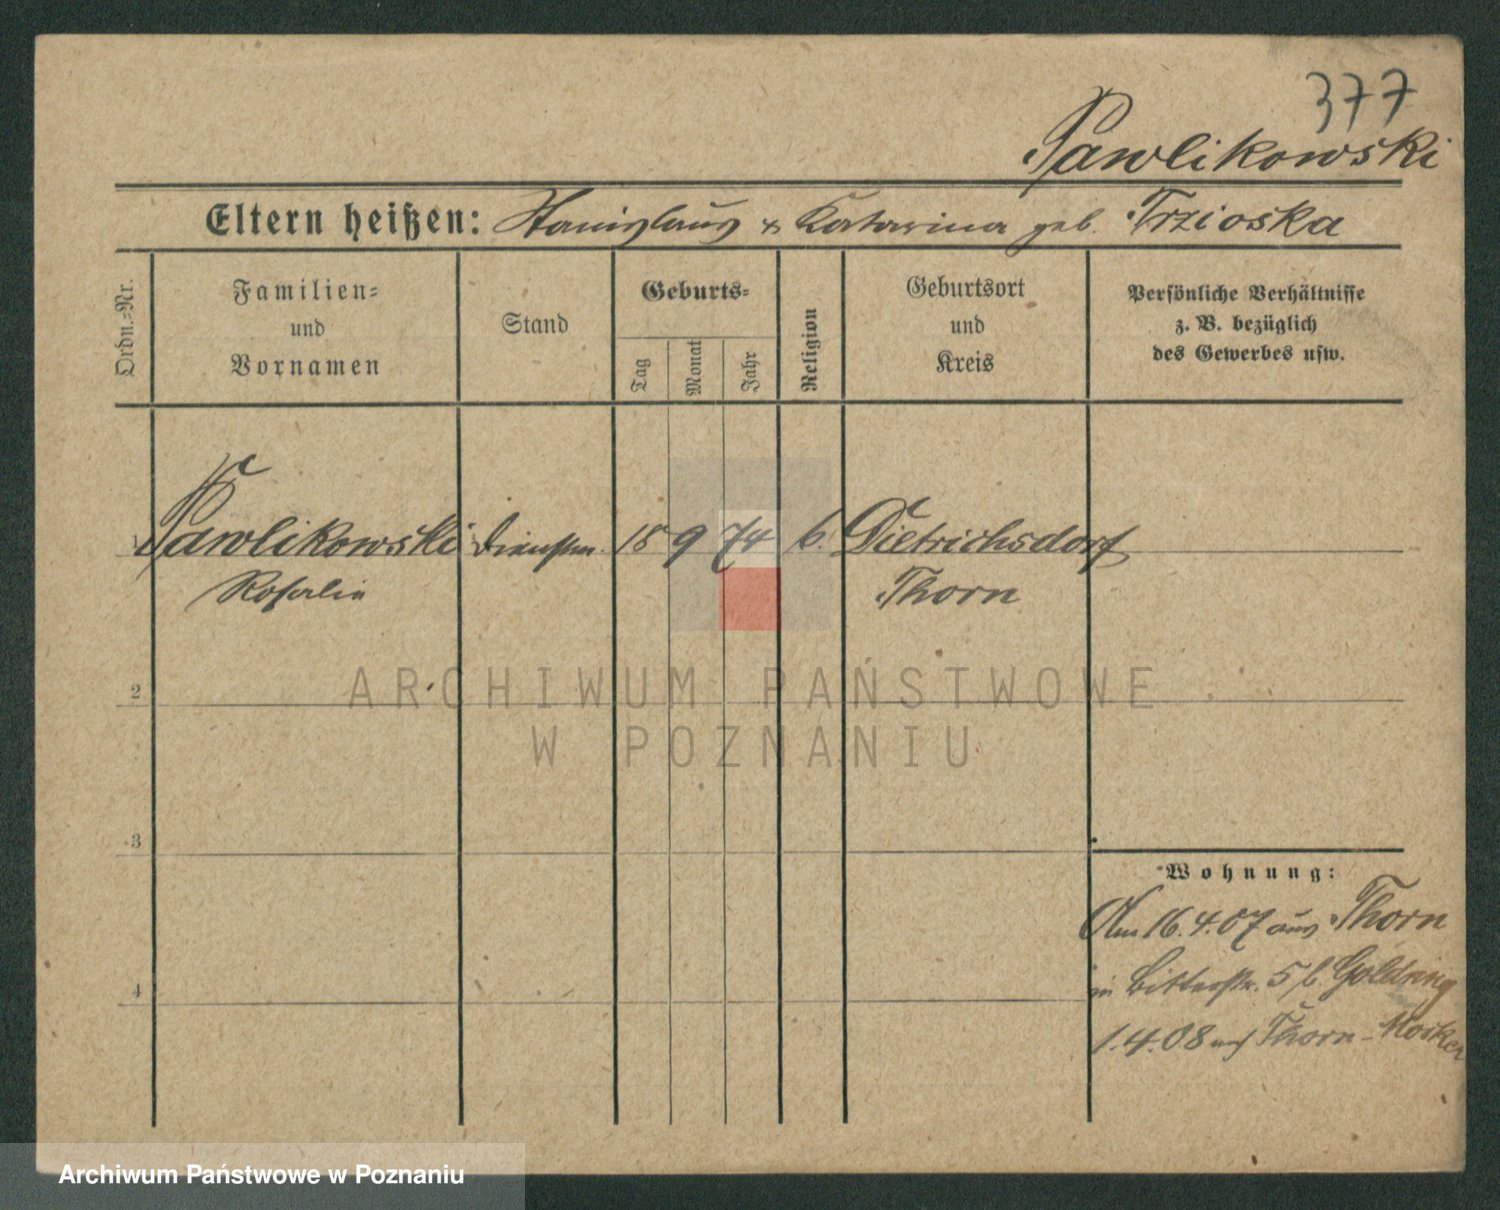 377
Pawlikowski
Eltern heißen: Stanislaus & Katarina geb. Trzioska
Ordn.-Nr.
Familien-
und
Vornamen
Stand
Geburts-
Tag
Monat
Jahr
Religion
Geburtsort
und
Kreis
Persönliche Verhältnisse
z. B. bezüglich
des Gewerbes usw.
1 Pawlikowski Dienstm. 18 9 74 k. Dietrichsdorf
Rosalia Thorn
2
3
4
Wohnung:
Am 16.4.07 aus Thorn
in 5 b. Goldring
1.4.08 nach Thorn-Mocker
ARCHIWUM PAŃSTWOWE
W POZNANIU
Archiwum Państwowe w Poznaniu